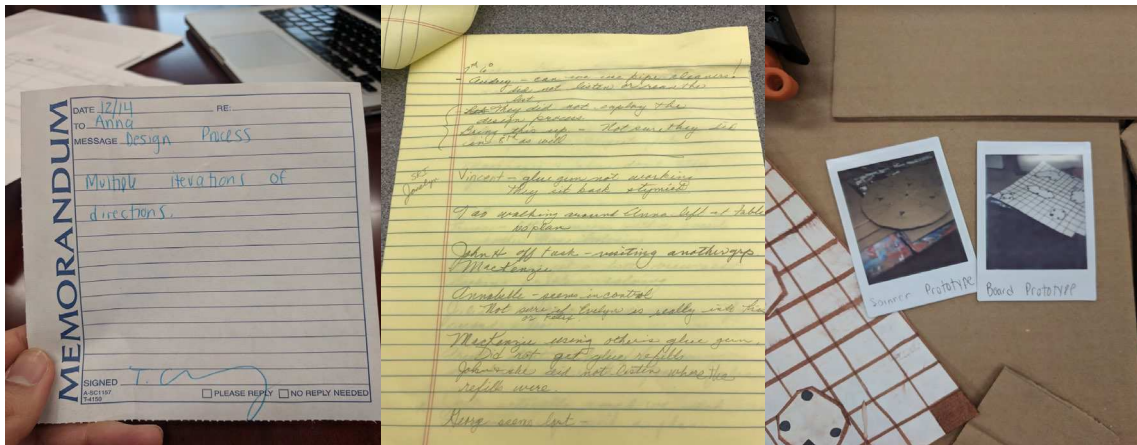 MEMORANDUM
DATE 12/14 RE:
TO Anna
MESSAGE Design Process
Multiple iterations of
directions.
SIGNED T.
A-SC1157
T-4150
PLEASE REPLY NO REPLY NEEDED
- Audrey - can we use pipe cleaners!
did not listen or read the
list
They did not employ the
design process
Bring this up - Not sure they did
in 8th as well
Vincent - glue gun not working
They sit back stymied
I as walking around Anna left at table
no plan
John H. off task - visiting another grp
MacKenzie
Annabelle - seems in control
Not sure if Evelyn is really
or Felix
MacKenzie using others glue gun.
Did not get glue refills
did not listen where the
refill were.
George seems lost -
Spinner Prototype
Board Prototype